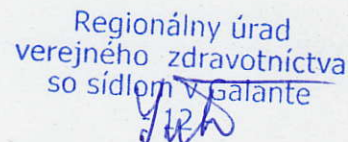 Regionálny úrad
verejného zdravotníctva
so sídlom v Galante